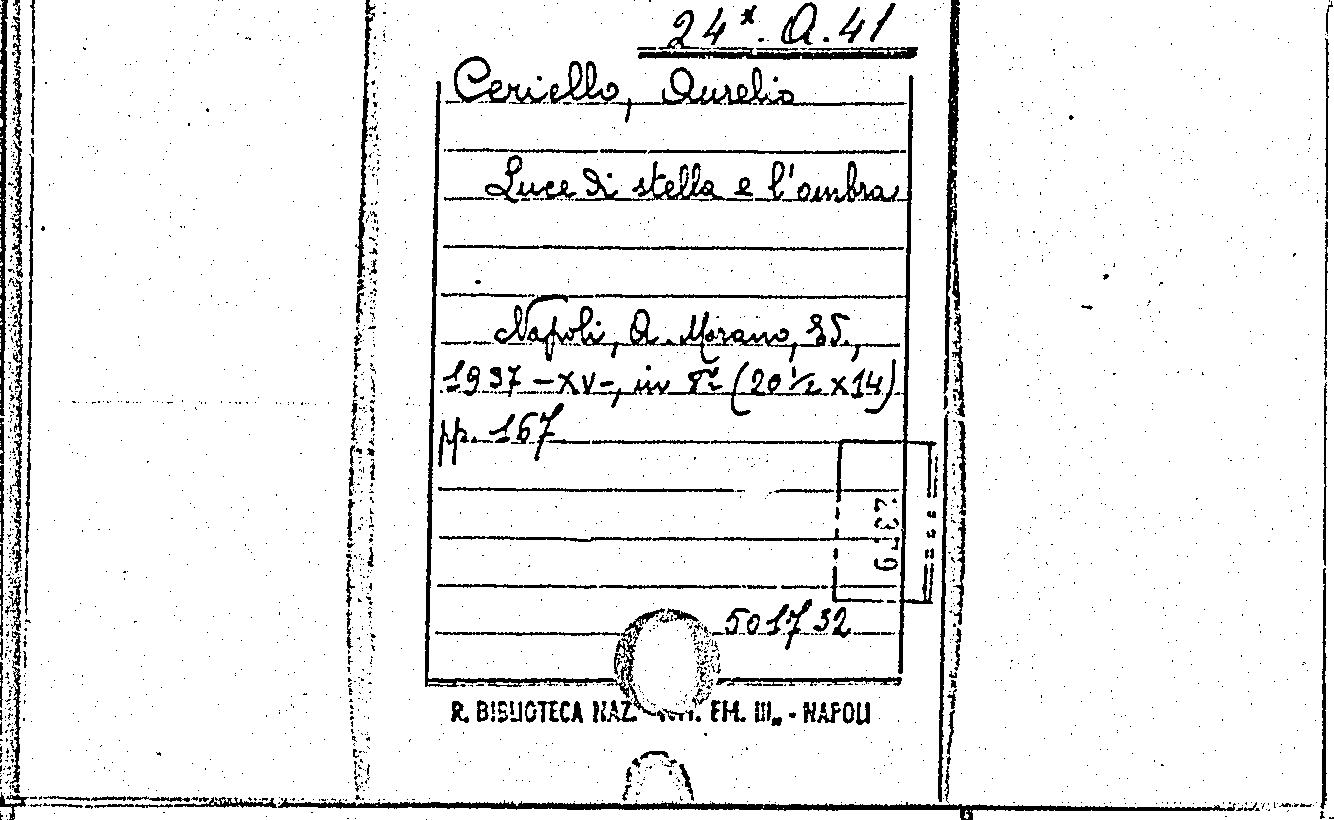 24*. A. 41
Ceriello, Aurelio
Luce di stella e l'ombra
Napoli, A. Morano, Ed.,
1937 -XV-, in 8º (20 1/2 x 14)
pp. 167
501732
R. BIBLIOTECA NAZ. EM. III„ - NAPOLI